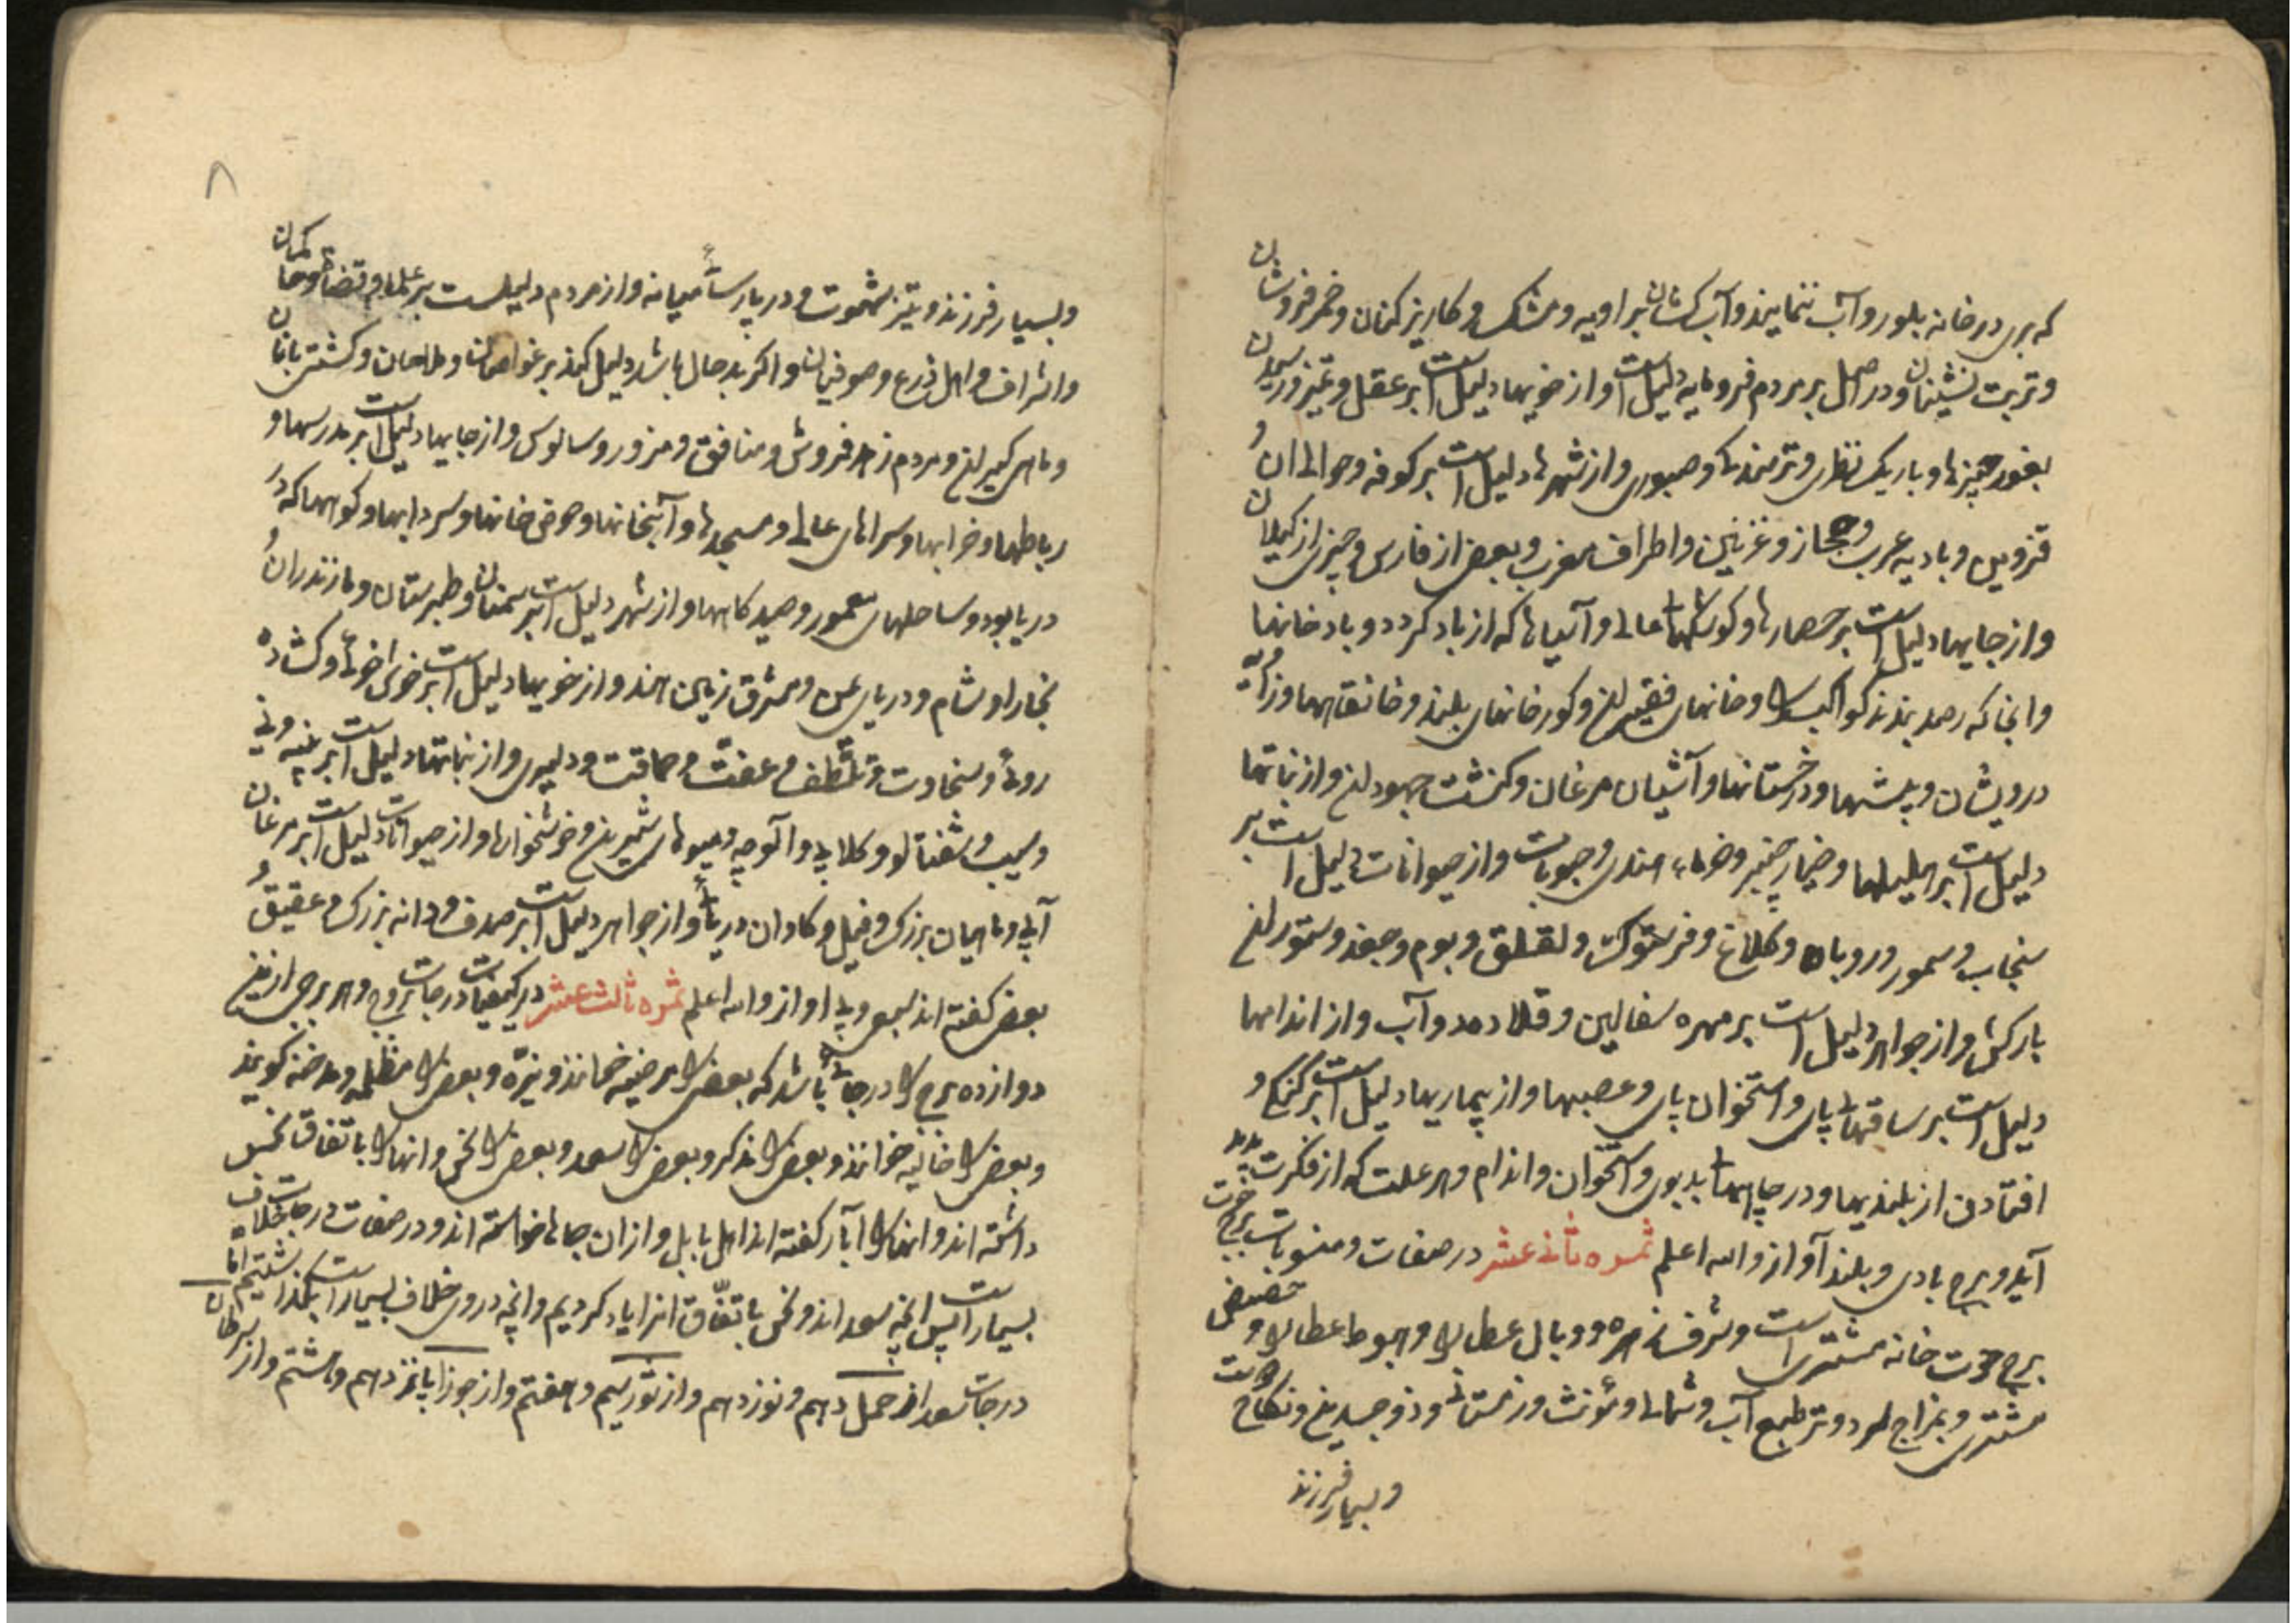 که بری در خانه بلور و آب نمایند و آب کشان بر اویه و مشک و کاریز کنان و خمر فروشان
و تربت نشینان و در اصل بر مردم فرومایه دلیل است و از خویها دلیل است بر عقل و تمیز و رسیدن
بغور چیزها و باریک نظری و ترمندکی و صبوری و از شهرها دلیل است بر کوفه و حوالی ان و
قزوین و بادیه عرب و حجاز و غزنین و اطراف مغرب و بعضی از فارس و چیزی از کیلان
و از جایها دلیل است بر حصارها و کوشکهاء عالی و آسیاها که از باد کردد و باد خانها
و انجا که رصد بندند کواکب را و خانهای فقیهان و کورخانهای بلند و خانقاهها و زاویه
درویشان و بیشها و درختستانها و آشیان مرغان و کنشت جهودان و از نباتها
دلیل است بر هلیلها و خیار چنبر و خرماء هندی و حبوبات و از حیوانات دلیل است بر
سنجاب و سمور و روباه و کلاغ و فرستوک و لقلق و بوم و جغد و ستوران
بارکش و از جواهر دلیل است بر مهره سفالین و قلاده و آب و از اندامها
دلیل است بر ساقهاء پای و استخوان پای و عصبها و از بیماریها دلیل است بر کزیدکی و
افتادن از بلندیها و در چاهها بد بوی و استخوان و اندام و هر علت که از فکرت پدید
آید و برج بادی و بلند آواز والله اعلم ثمره ثانی عشر در صفات و منسوبات برج حوت
برج حوت خانه مشتری است و شرف زهره و وبال عطارد و هبوط عطارد و حضیض
مشتری و بمزاج سرد و تر طبع آب و شمالی و مؤنث و زمستانی و ذو جسدین و نکاح دوست
و بسیار فرزند
۸
و بسیار فرزند و تیز شهوت و در پارسائی میانه و از مردم دلیلست بر علما و قضاة و حاکمان
و اشراف و اهل ورع و صوفیان و اکر بد حال باشد دلیل کند بر غواصان و ملاحان و کشتی بانان
و ماهی کیران و مردم زهد فروش و منافق و مزور و سالوس و از جایها دلیل است بر مدرسها و
رباطها و خرابها و سراهای عالی و مسجدها و آبخانها و حوض خانها و سردابها و کوهها که در
دریا بود و ساحلهای معمور و صید کاهها و از شهر دلیل است بر سمنان و طبرستان و مازندران و
بخارا و شام و دریای یمن و مشرق زمین هند و از خویها دلیل است بر خوش خوئی و کشاده
روئی و سخاوت و تلطف و عفت و حماقت و دلیری و از نباتها دلیل است بر پنبه و نی
و سیب و شفتالو و کلابی و آلوچه و میوهای شیرین و خرشخوارها و از حیوانات دلیل است بر مرغان
آبی و ماهیان بزرک و فیل و کاوان دریائی و از جواهر دلیل است بر صدف و دانه بزرک و عقیق و
بعضی کفته اند بسد و بی اواز والله اعلم ثمره ثالث عشر در کیفیات درجات بروج و هر برجی از این
دوازده برج را درجاتی باشد که بعضی را مرضیه خوانند و نیره و بعضی را مظلمه و مدخنه کویند
و بعضی را خالیه خوانند و بعضی را مذکر و بعضی را سعد و بعضی را نحس و انها را باتفاق نحس
داشته اند و انها را آبار کفته اند اهل بابل و از ان چاها خواسته اند و در صفات درجات خلاف
بسیار است پس انچه سعد اند و نحس باتفاق انرا یاد کردیم و انچه در وی خلاف بسیار است بکذاشتیم اما
درجات سعد از حمل دهم و نوزدهم و از ثور سیم و هفتم و از جوزا پانزدهم و هشتم و از سرطان